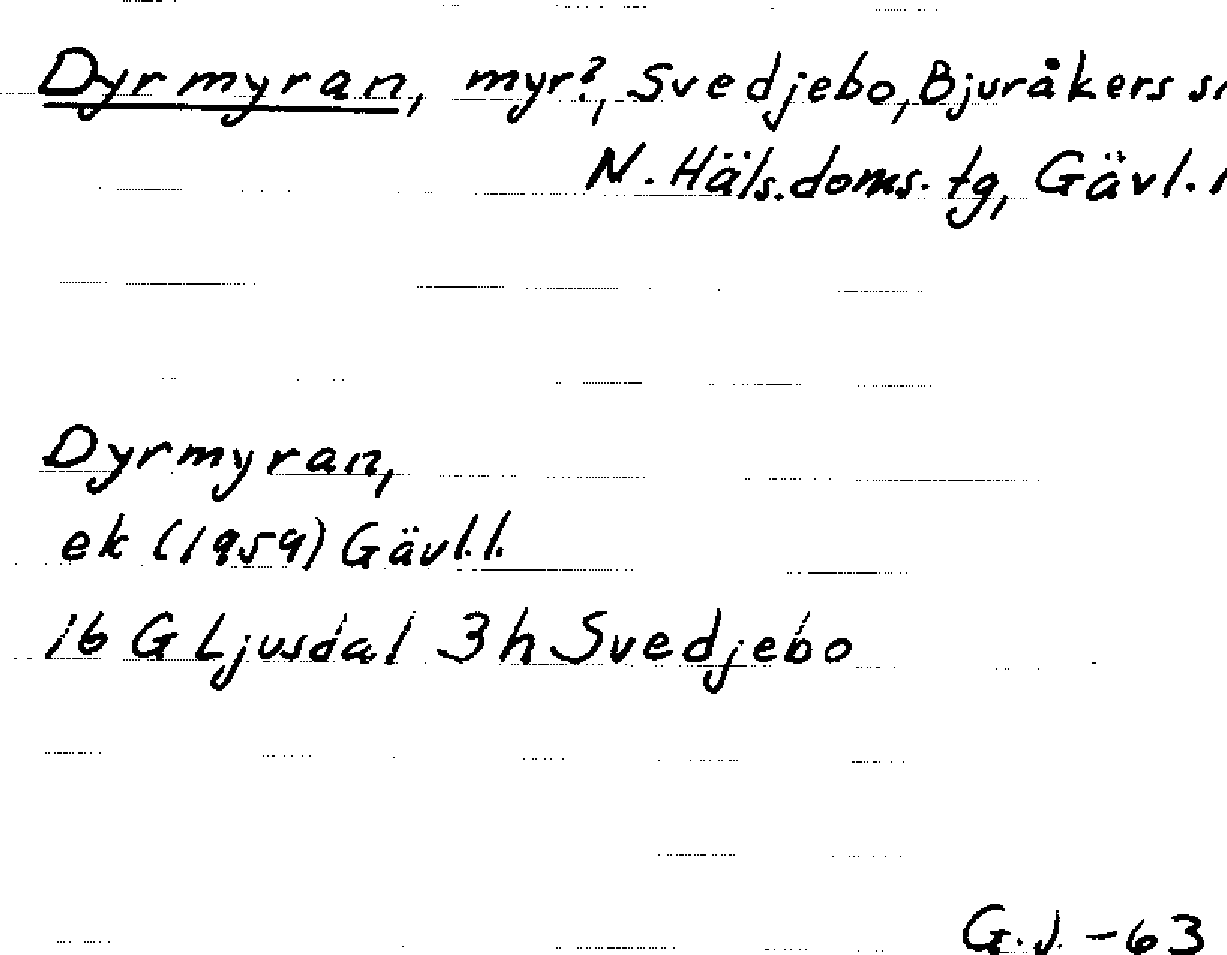 Dyrmyran, myr?, Svedjebo, Bjuråkers sn
N. Häls. doms. tg, Gävl. l
Dyrmyran,
ek (1959) Gävl.l.
16 G Ljusdal 3h Svedjebo
G.J. -63